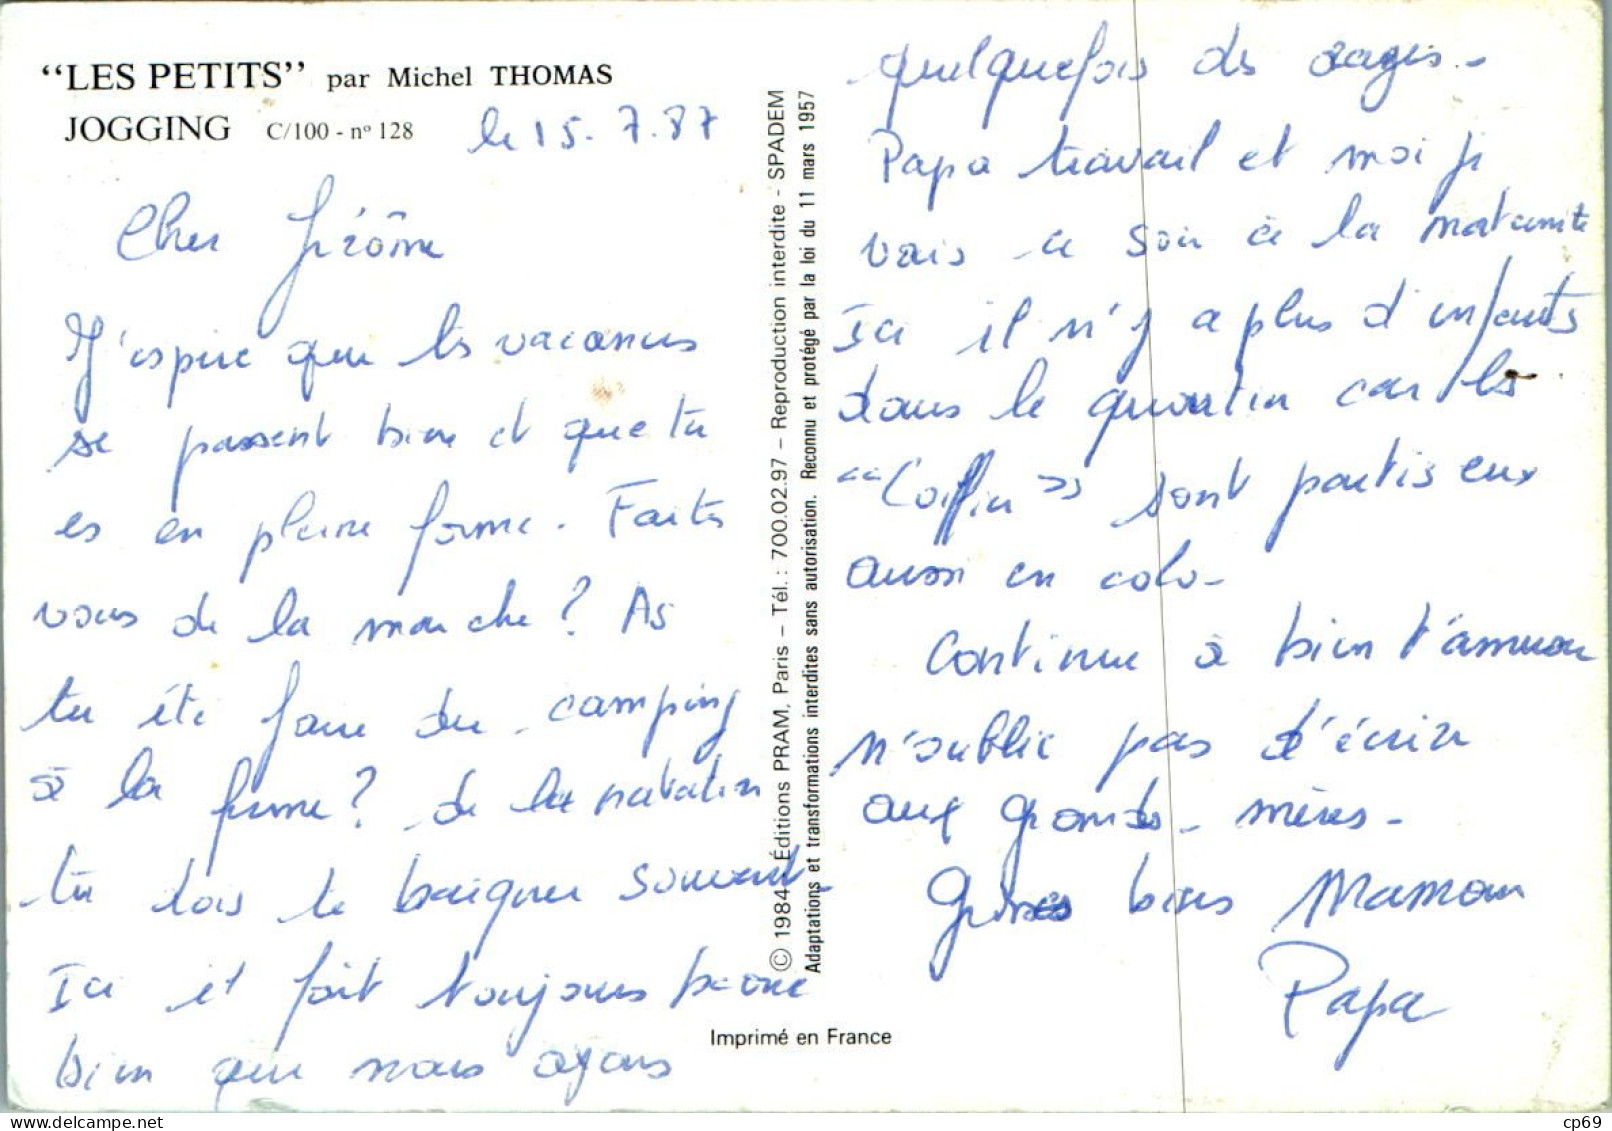 “LES PETITS” par Michel THOMAS
JOGGING C/100 - nº 128
le 15.7.87
Cher Jérôme
J'espère que les vacances
se passent bien et que tu
es en pleine forme. Faites
vous de la marche? As
tu été faire du camping
à la ferme? de la natation
tu dois te baigner souvent.
Ici il fait toujours beau
bien que nous ayons
© 1984 - Éditions PRAM, Paris – Tél. : 700.02.97 – Reproduction interdite - SPADEM
Adaptations et transformations interdites sans autorisation. Reconnu et protégé par la loi du 11 mars 1957
Imprimé en France
quelquefois des orages.
Papa travail et moi je
vais ce soir à la maternité
Ici il n'y a plus d'enfants
dans le quartier car les
“Coiffin” sont partis eux
aussi en colo-
Continue à bien t'amuser
n'oublie pas d'écrire
aux grands-mères-
Grosses bises Maman
Papa
cp69